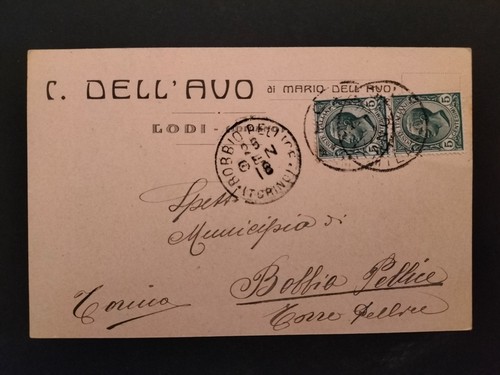 C. DELL'AVO di MARIO DELL'AVO
LODI -
BOBBIO PELLICE
(TORINO)
5
5
Spett
Municipio di
Bobbio Pellice
Torre Pellice
Torino